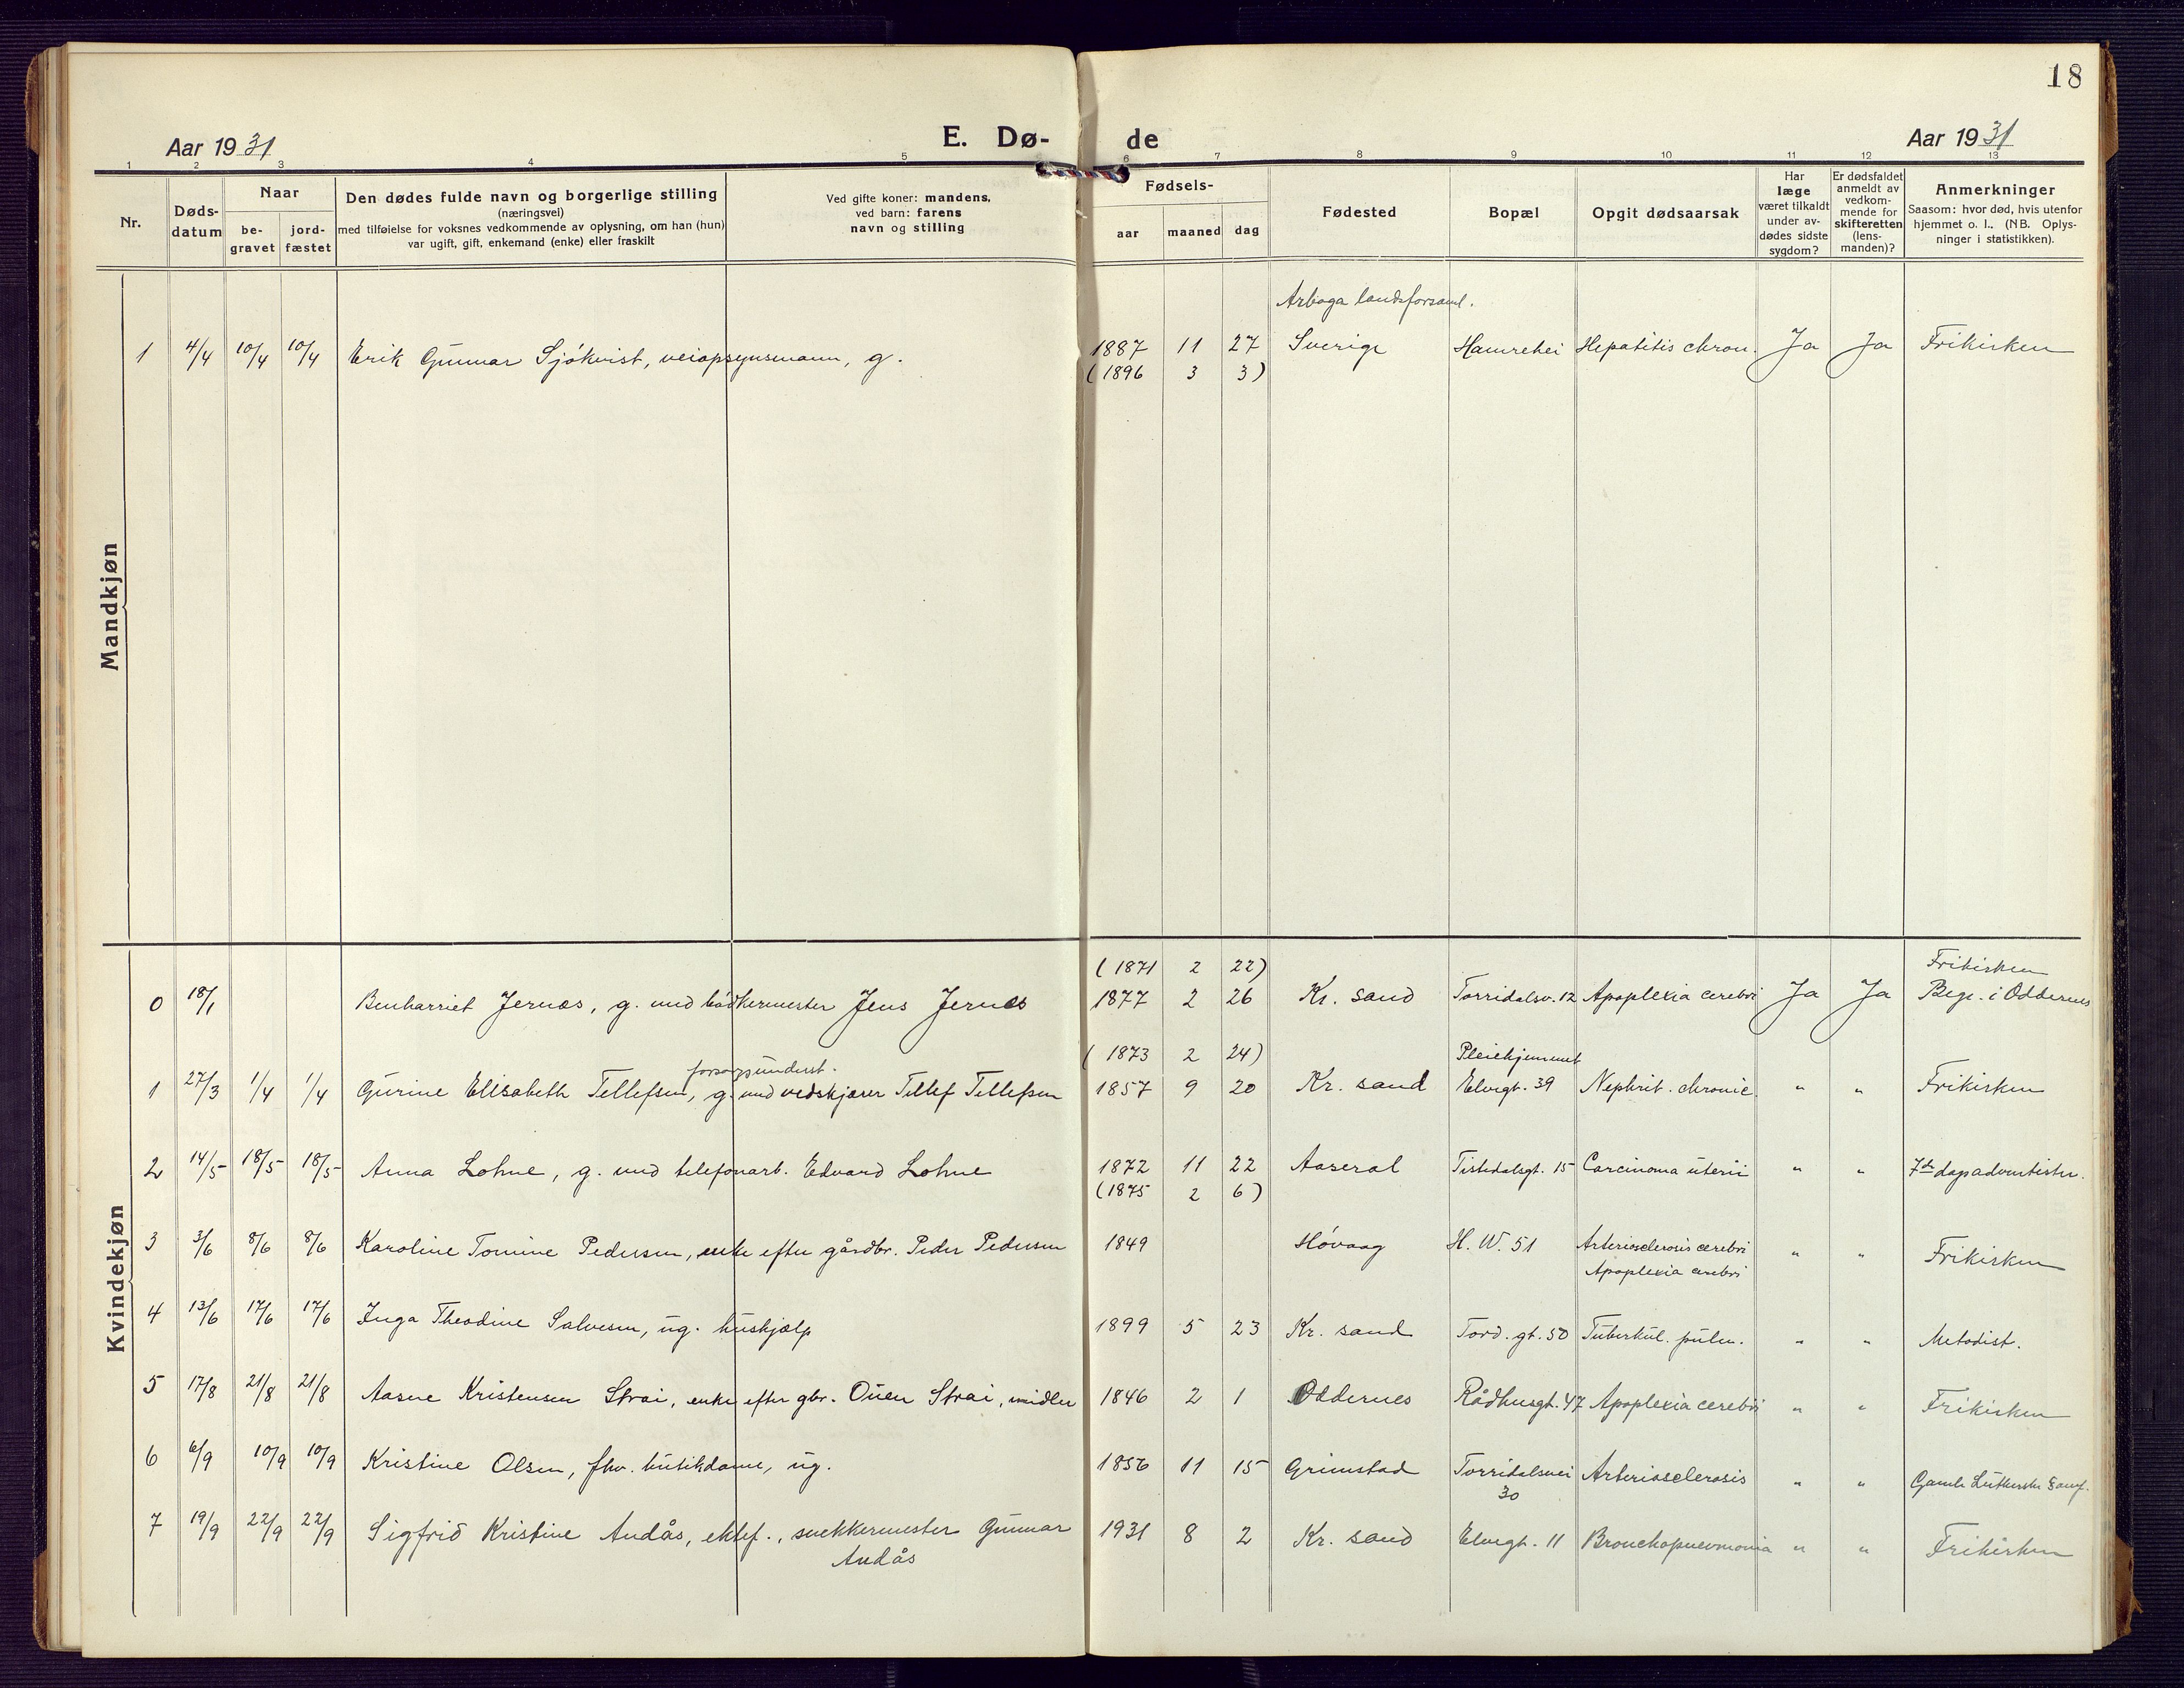 18
Aar 1931 E. Dø- de Aar 1931
1 2 3 4 5 6 7 8 9 10 11 12 13
Nr.
Døds-
datum
Naar
be-
gravet
jord-
fæstet
Den dødes fulde navn og borgerlige stilling
(næringsvei)
med tilføielse for voksnes vedkommende av oplysning, om han (hun)
var ugift, gift, enkemand (enke) eller fraskilt
Ved gifte koner: mandens,
ved barn: farens
navn og stilling
Fødsels-
aar maaned dag
Fødested
Bopæl
Opgit dødsaarsak
Har
læge
været tilkaldt
under av-
dødes sidste
sygdom?
Er dødsfaldet
anmeldt av
vedkom-
mende for
skifteretten
(lens-
manden)?
Anmerkninger
Saasom: hvor død, hvis utenfor
hjemmet o. l.. (NB. Oplys-
ninger i statistikken).
Mandkjøn
Arboga landsforsaml.
1 4/4 10/4 10/4 Erik Gunnar Sjökvist, veiopsynsmann, g. 1887 11 27 Sverige Hamrehei Hepatitis chron. Ja Ja Frikirken
(1896 3 3)
Kvindekjøn
(1871 2 22) Frikirken
0 18/1 Benharriet Jernæs, g. med bödkermester Jens Jernæs 1877 2 26 Kr. sand Torridalsv. 12 Apoplexia cerebri Ja Ja Begr. i Oddernes
forsorgsunderst. (1873 2 24) Pleiehjemmet
1 27/3 1/4 1/4 Gurine Elisabeth Tellefsen, g. med vedskjærer Tellef Tellefsen 1857 9 20 Kr. sand Elvegt. 39 Nephrit. chronic. " " Frikirken
2 14/5 18/5 18/5 Anna Lohne, g. med telefonarb. Edvard Lohne 1872 11 22 Aaseral Tistedalsgt. 15 Carcinoma uterii " " 7de dags adventister.
(1875 2 6)
3 3/6 8/6 8/6 Karoline Tomine Pedersen, enke efter gårdbr. Peder Pedersen 1849 Høvaag H. W. 51 Arteriosclerosis cerebri " " Frikirken
Apoplexia cerebri
4 13/6 17/6 17/6 Inga Theodine Salvesen, ug. hushjælp 1899 5 23 Kr. sand Tord. gt. 50 Tuberkul. pulm. " " Metodist.
5 17/8 21/8 21/8 Aasne Kristensen Strai, enke efter gbr. Ouen Strai, midler 1846 2 1 Oddernes Rådhusgt. 47 Apoplexia cerebri " " Frikirken
6 6/9 10/9 10/9 Kristine Olsen, fhv. butikdame, ug. 1856 11 15 Grimstad Torridalsvei Arteriosclerosis " " Gamle Lutherske Samf.
30
7 19/9 22/9 22/9 Sigfrid Kristine Andås, ektef., snekkermester Gunnar 1931 8 2 Kr. sand Elvegt. 11 Bronchopneumonia " " Frikirken
Andås